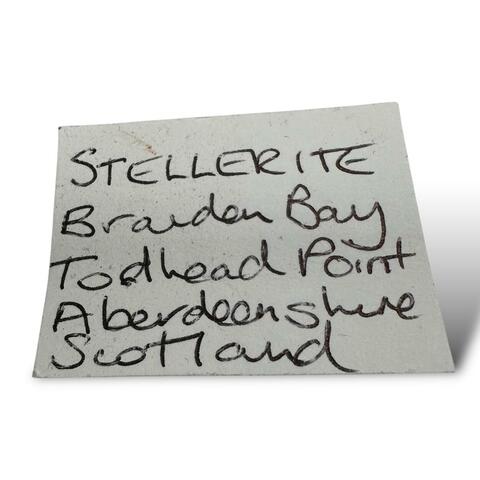 STELLERITE
Braiden Bay
Todhead Point
Aberdeenshire
Scotland